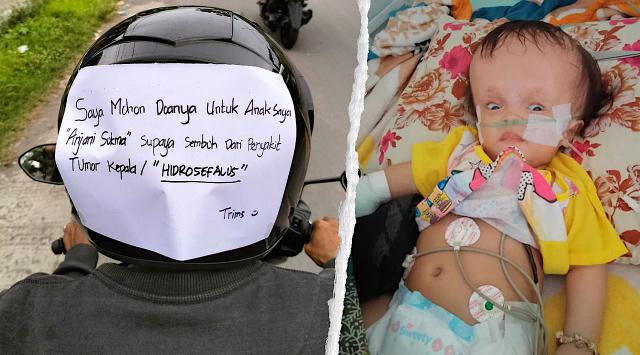 Saya Mohon Doanya Untuk Anak Saya
"Anjani Sukma" Supaya Sembuh Dari Penyakit
Tumor Kepala / "HIDROSEFALUS"
Trims
Sweety